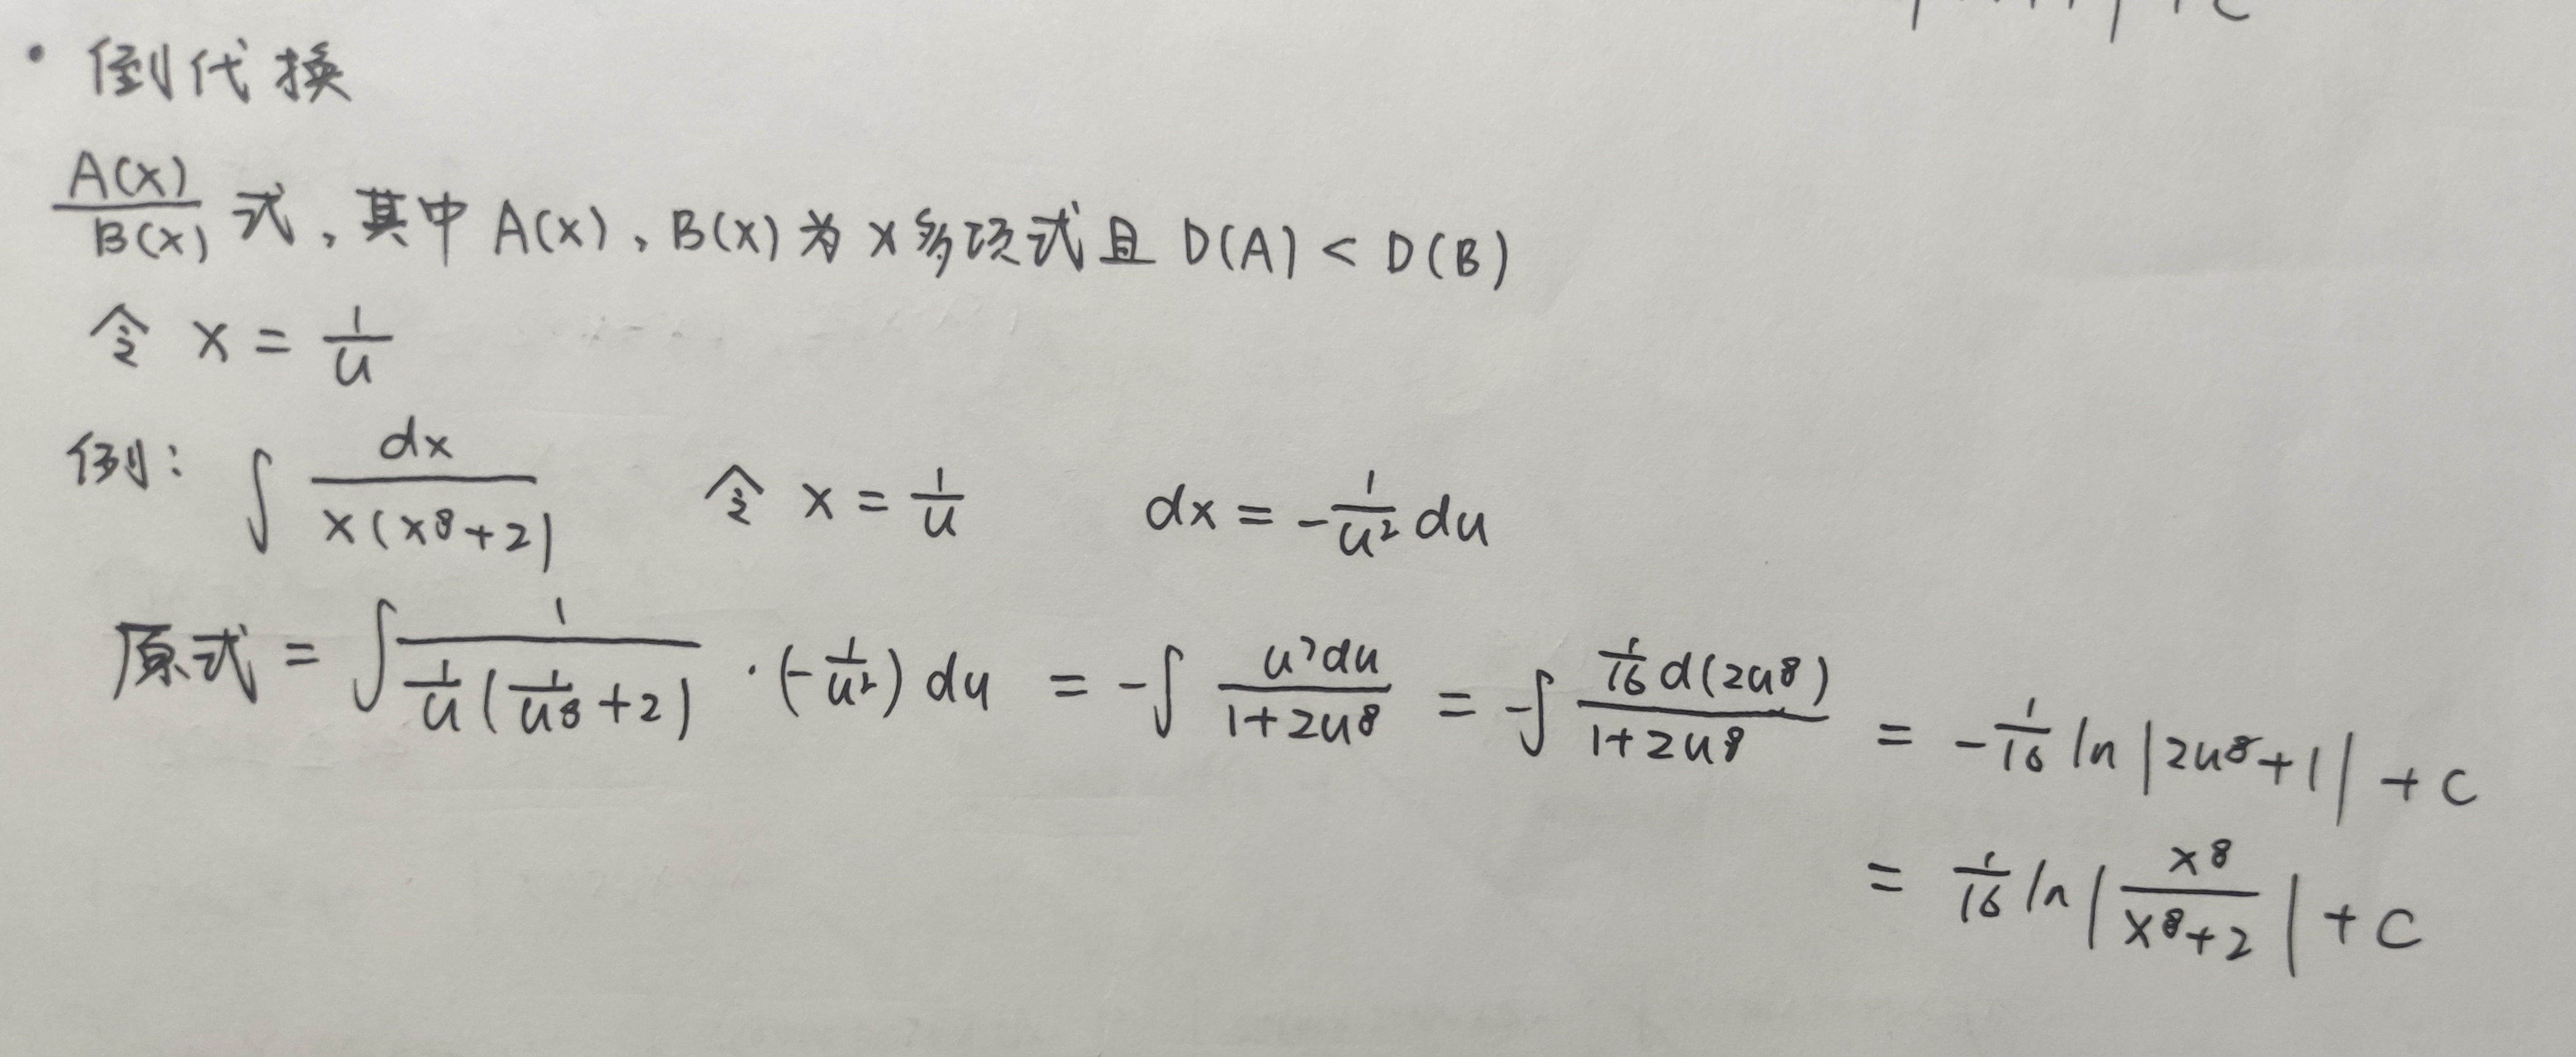 • 倒代换
A(x)/B(x) 式，其中 A(x)、B(x) 为 x 多项式且 D(A) < D(B)
令 x = 1/u
例： ∫ dx/(x(x⁸+2)) 令 x = 1/u dx = -1/u² du
原式 = ∫ 1/(1/u (1/u⁸ + 2)) · (-1/u²) du = -∫ u⁷du/(1+2u⁸) = -∫ (1/16 d(2u⁸))/(1+2u⁸) = -1/16 ln|2u⁸+1| + C
= 1/16 ln|x⁸/(x⁸+2)| + C